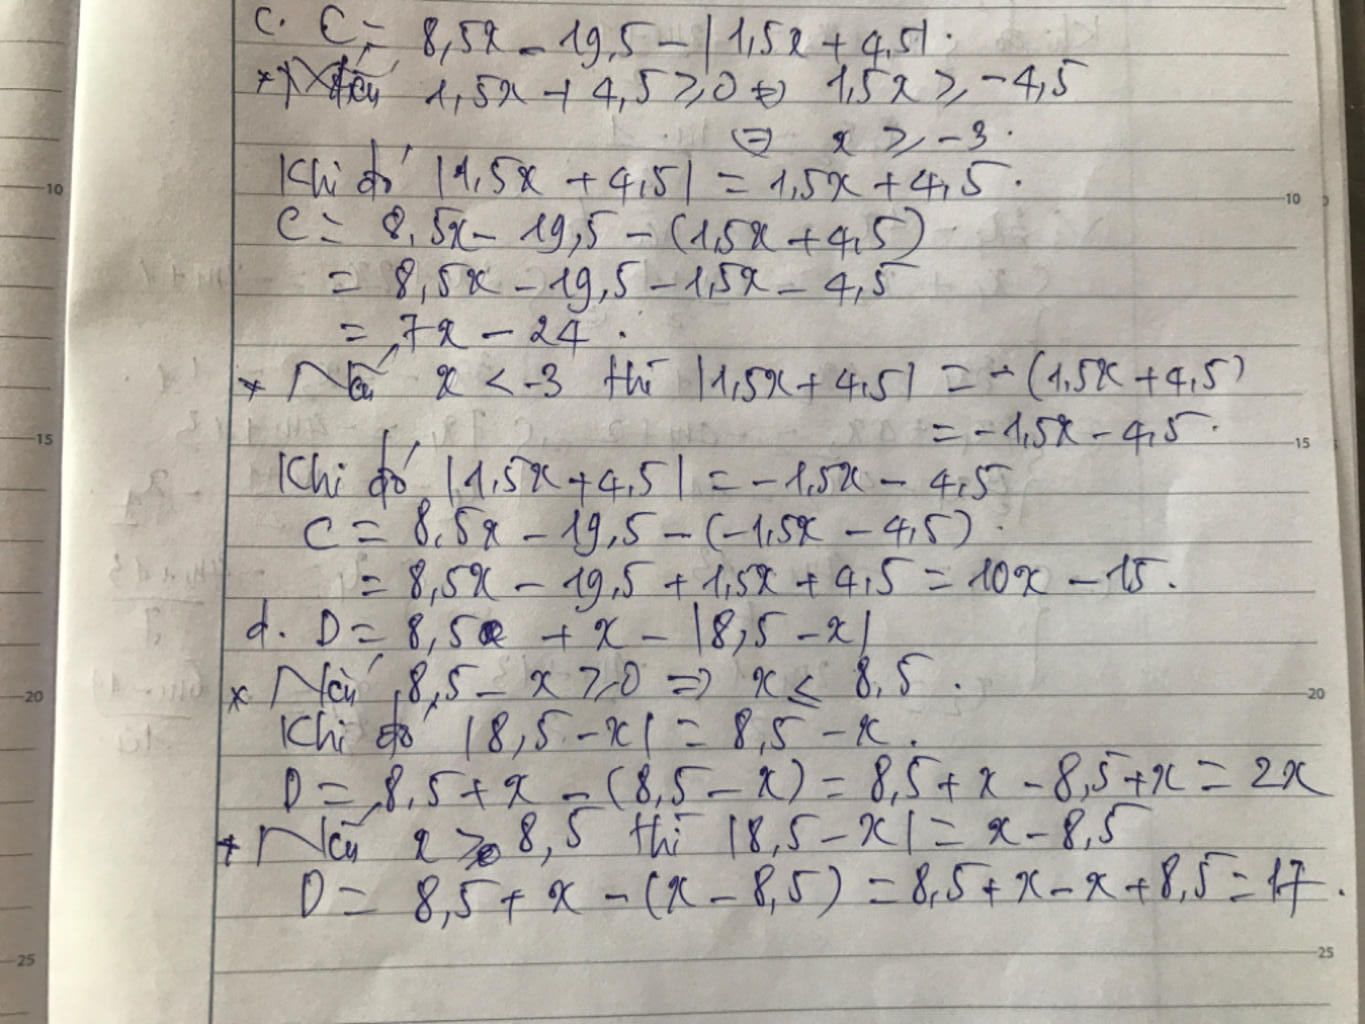 c. C = 8,5x - 19,5 - |1,5x + 4,5|.
* Nếu 1,5x + 4,5 ≥ 0 ⇔ 1,5x ≥ -4,5
⇔ x ≥ -3.
Khi đó |1,5x + 4,5| = 1,5x + 4,5.
10
10
C = 8,5x - 19,5 - (1,5x + 4,5)
= 8,5x - 19,5 - 1,5x - 4,5
= 7x - 24.
* Nếu x < -3 thì |1,5x + 4,5| = -(1,5x + 4,5)
= -1,5x - 4,5.
15
15
Khi đó |1,5x + 4,5| = -1,5x - 4,5
C = 8,5x - 19,5 - (-1,5x - 4,5).
= 8,5x - 19,5 + 1,5x + 4,5 = 10x - 15.
d. D = 8,5 + x - |8,5 - x|
* Nếu 8,5 - x ≥ 0 => x ≤ 8,5.
20
20
Khi đó |8,5 - x| = 8,5 - x.
D = 8,5 + x - (8,5 - x) = 8,5 + x - 8,5 + x = 2x
* Nếu x > 8,5 thì |8,5 - x| = x - 8,5
D = 8,5 + x - (x - 8,5) = 8,5 + x - x + 8,5 = 17.
25
25